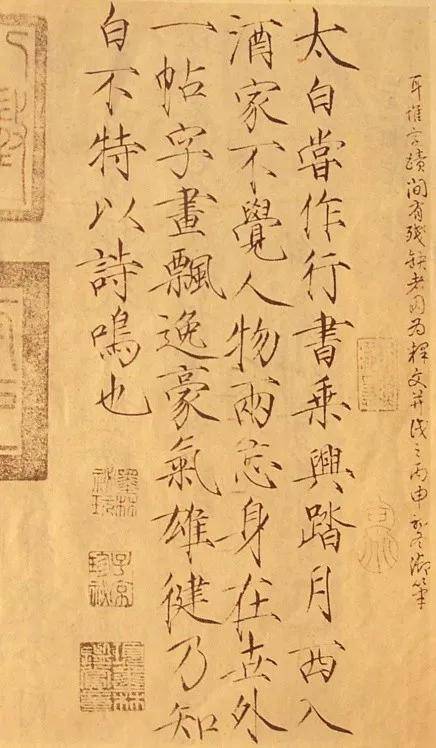 耳惟字蹟間有殘缺者因為釋文并識之丙申御筆
太白嘗作行書乘興踏月西入
酒家不覺人物兩忘身在世外
一帖字畫飄逸豪氣雄健乃知
白不特以詩鳴也
墨林
祕玩
子京
珍祕